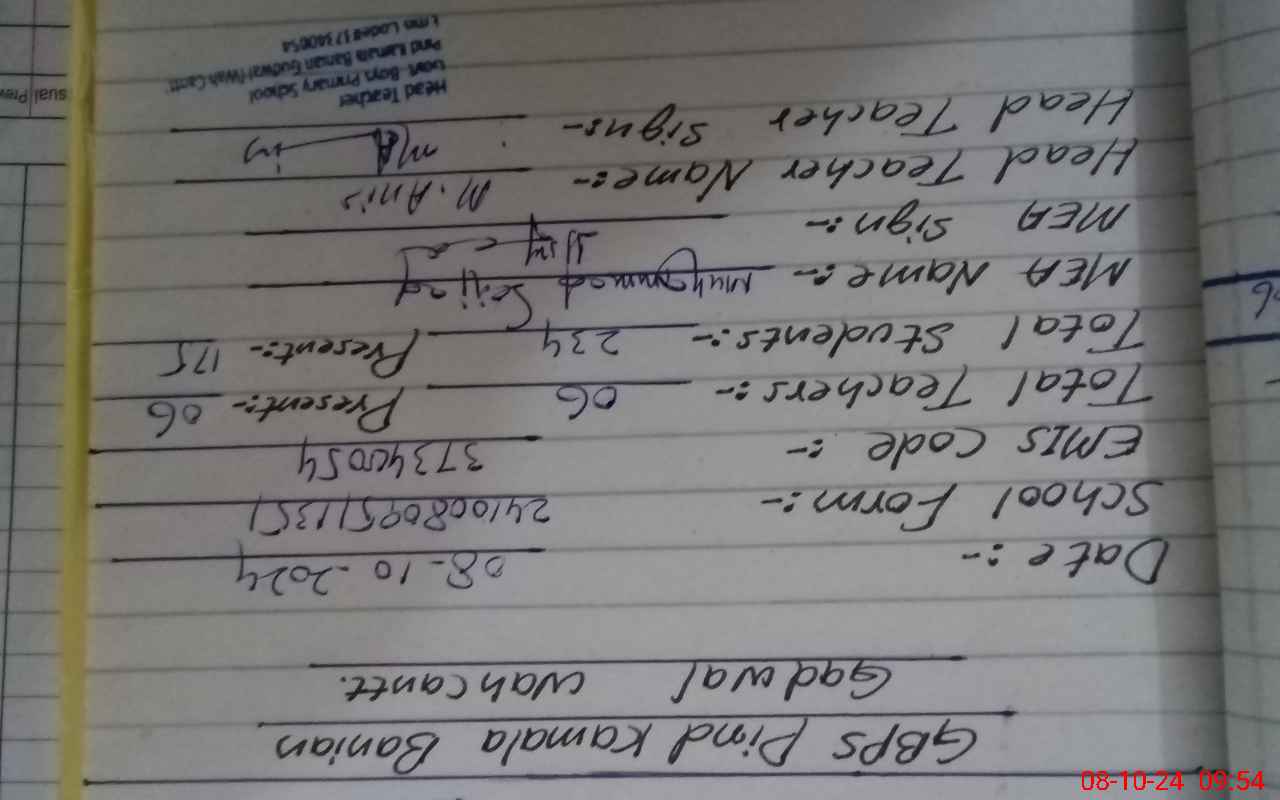 GBPS Pind Kamala Banian
Gadwal Wah cantt.
Date:- 08-10-2024
School Form:- 24100809511351
EMIS Code:- 37340054
Total Teachers:- 06 Present:- 06
Total Students:- 234 Present:- 175
MEA Name:- Muhammad Sajjad
MEA Sign:-
Head Teacher Name:- M. Anis
Head Teacher Sign:-
Head Teacher
Govt. Boys Primary School
Pind Kamala Banian Gudwal (Wah Cantt)
Emis Code# 37340054
sual Prev
06
08-10-24 09:54